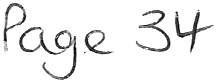 Page 34